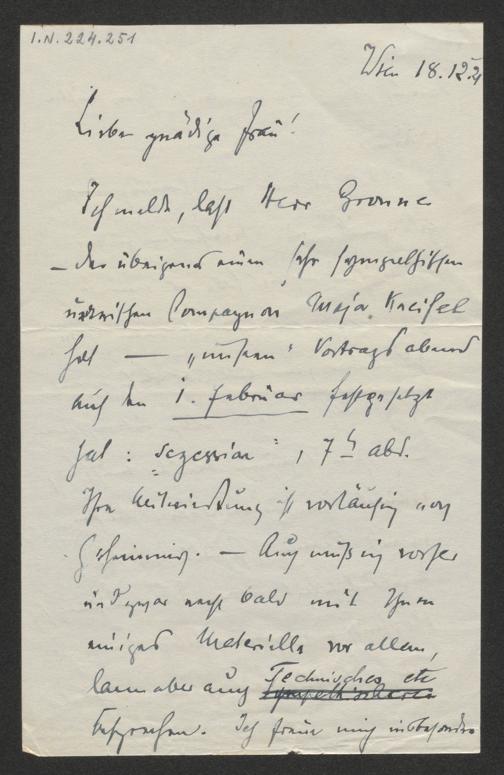 I.N. 224.251
Wien 18.12.2
Liebe gnädige Frau!
Ich melde, daß Herr Gronner
– der übrigens einen sehr sympathischen
Compagnon Major Kneifel
hat — „unseren“ Vortragsabend
auf den 1. Februar festgesetzt
hat: „Sezession“, 7 h abd.
Ihre Mitwirkung ist vorläufig noch
Geheimnis. – Auch muß ich vorher
und zwar recht bald mit Ihnen
einiges Materielle vor allem,
dann aber auch Technisches etc
besprechen. Ich freue mich insbesondre